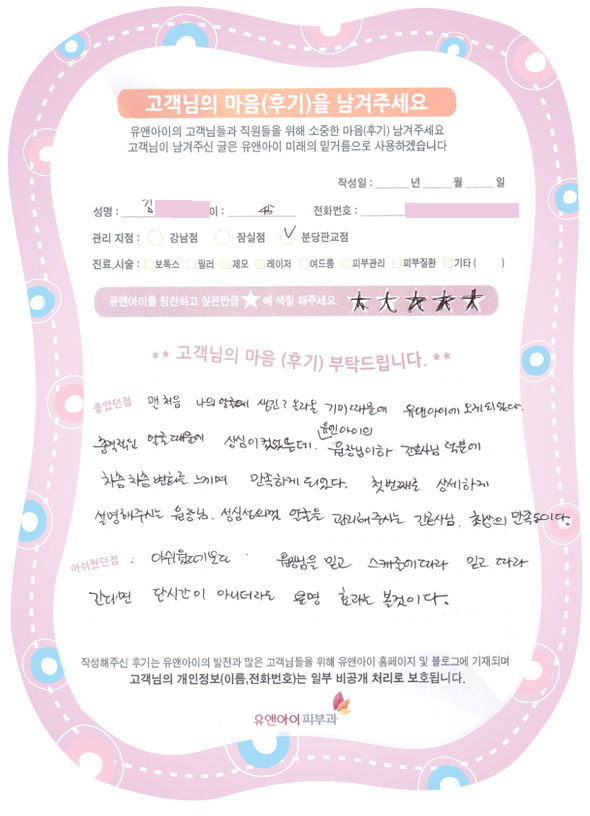 고객님의 마음(후기)을 남겨주세요
유앤아이의 고객님들과 직원들을 위해 소중한 마음(후기) 남겨주세요
고객님이 남겨주신 글은 유앤아이 미래의 밑거름으로 사용하겠습니다
작성일 : 년 월 일
성명 : 김 이 : 전화번호 :
관리 지점 : 강남점 잠실점 분당판교점
진료,시술 : 보톡스 필러 제모 레이저 여드름 피부관리 피부질환 기타 ( )
유앤아이를 칭찬하고 싶은만큼 ★ 에 색칠 해주세요. ★★★★★
** 고객님의 마음 (후기) 부탁드립니다. **
좋았던점 맨처음 나의 얼굴에 생긴? 올라온 기미때문에 유앤아이에 오게되었다.
충격적인 얼굴때문에 상심이 컸었는데. 유앤아이의 원장님이하 간호사님 덕분에
차츰차츰 변화를 느끼며 만족하게 되었다. 첫번째로 상세하게
설명해주시는 원장님. 성심성의껏 얼굴을 관리해주시는 간호사님. 최상의 만족도이다.
아쉬웠던점 : 원장님을 믿고 스케줄에따라 믿고 따라
간다면 단시간이 아니더라도 분명 효과는 볼것이다.
작성해주신 후기는 유앤아이의 발전과 많은 고객님들을 위해 유앤아이 홈페이지 및 블로그에 기재되며
고객님의 개인정보(이름,전화번호)는 일부 비공개 처리로 보호됩니다.
유앤아이피부과